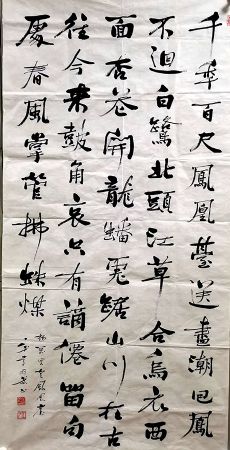 千秊百尺鳳凰臺送盡潮回鳳
不迴白鷺北頭江草合烏衣西
面杏花開龍蟠虎踞山川在古
往今來鼓角哀只有謫僊留句
處春風掌管拂蛛煤